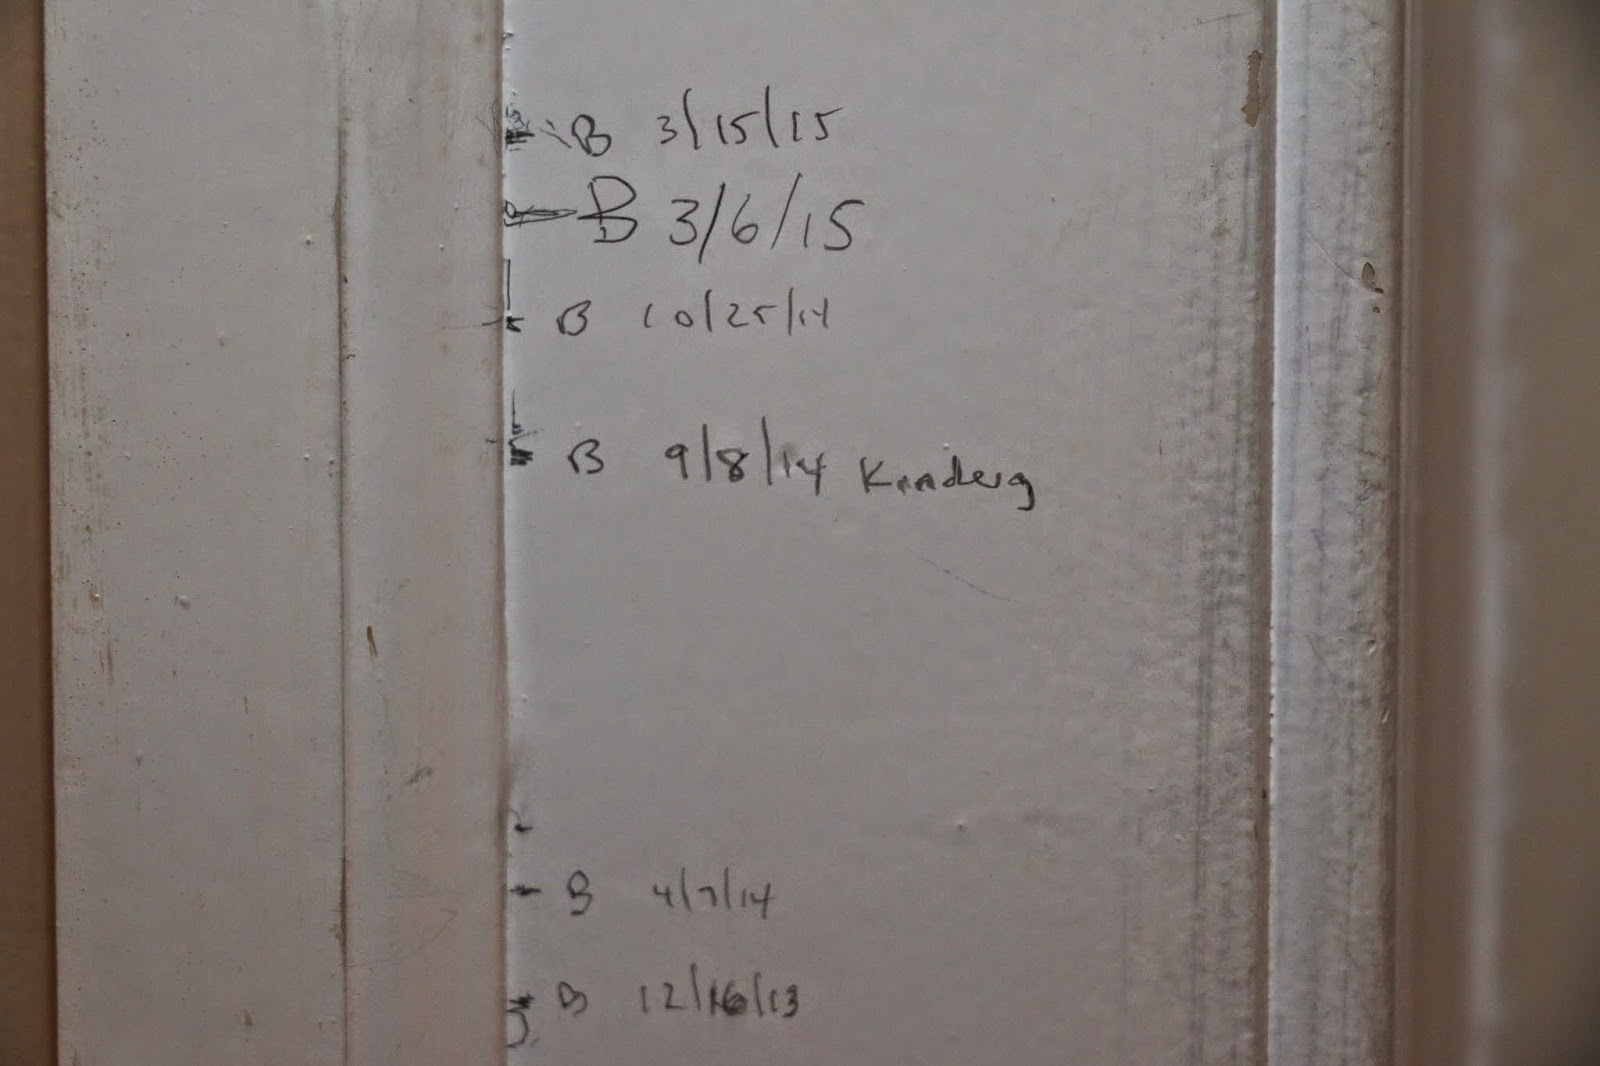 B 3/15/15
B 3/6/15
B 10/25/14
B 9/8/14 Kinderg
B 4/7/14
B 12/16/13